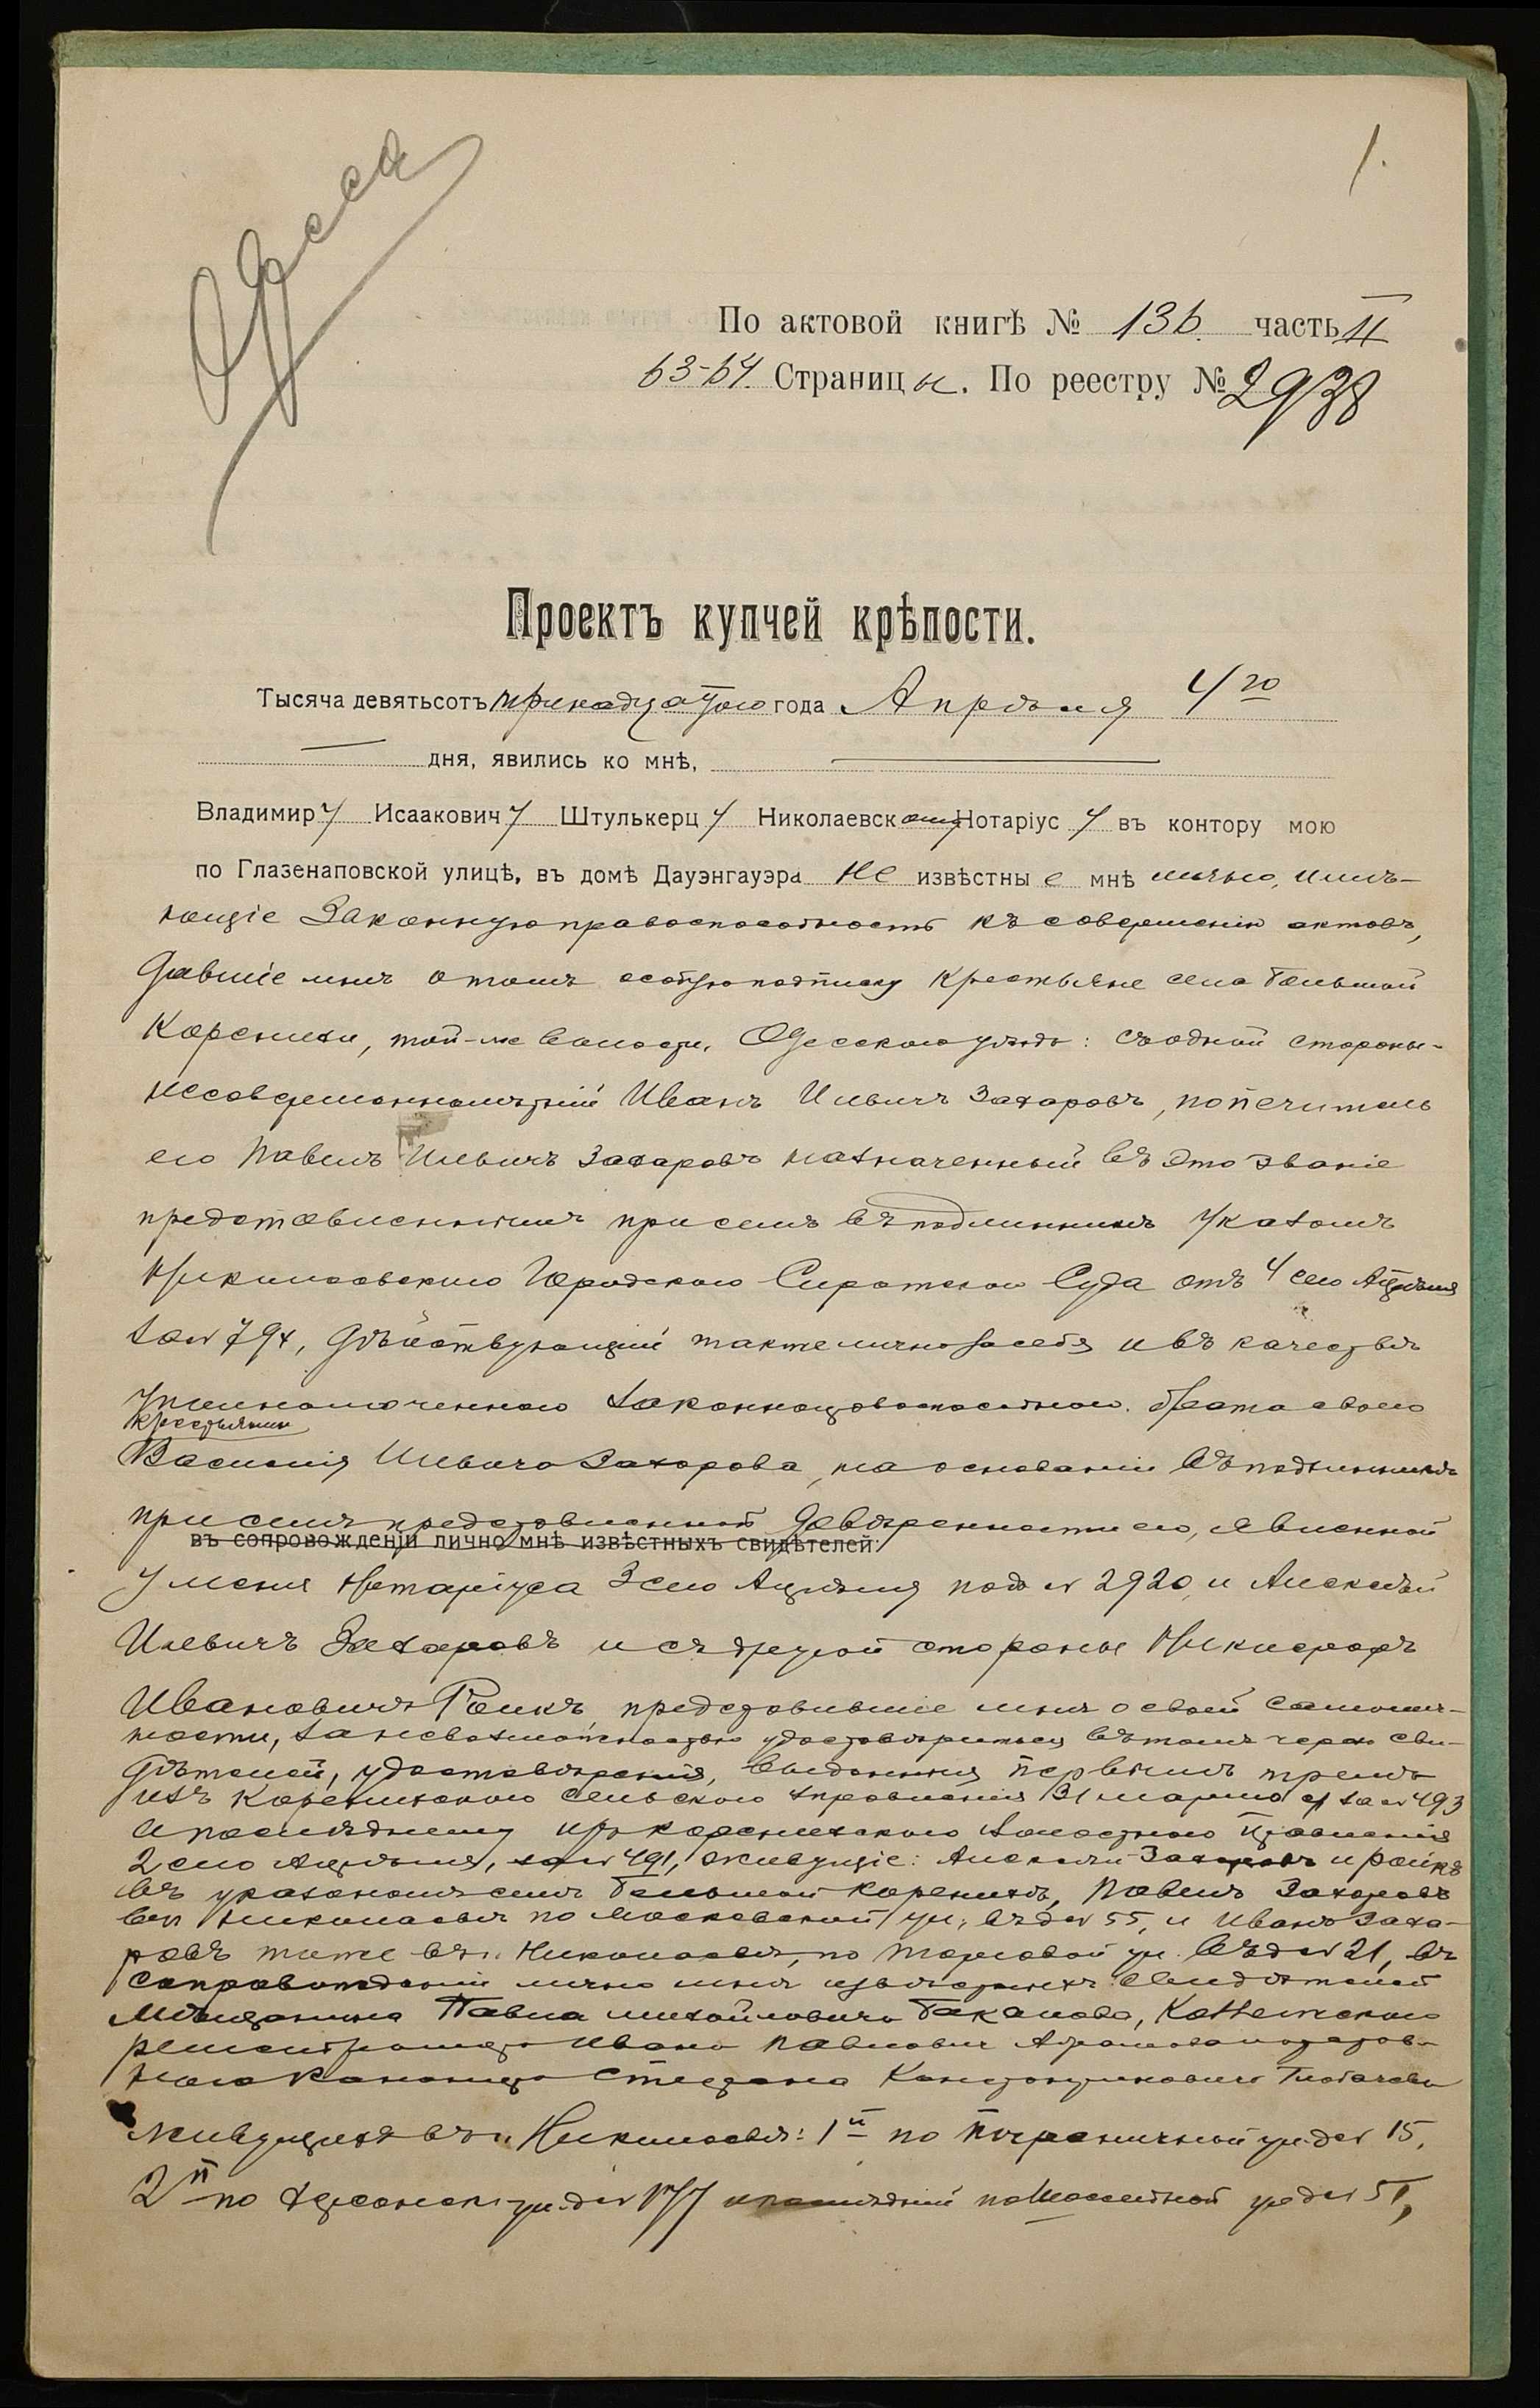 Одесса
1.
По актовой книгѣ № 136. часть II
63-64. Страницы. По реестру № 2938
Проектъ купчей крѣпости.
Тысяча девятьсотъ тринадцатаго года Апрѣля 4го
дня, явились ко мнѣ,
Владимиру Исааковичу Штулькерцу Николаевскому Нотаріусу въ контору мою
по Глазенаповской улицѣ, въ домѣ Дауэнгауэра не извѣстные мнѣ лично, имѣ-
ющіе законную правоспособность къ совершенію актовъ,
давшіе мнѣ о томъ особую подписку крестьяне села Большой
Коренихи, той-же волости, Одесскаго уѣзда: съ одной стороны-
несовершеннолѣтній Иванъ Ильичъ Захаровъ, попечитель
его Павелъ Ильичъ Захаровъ назначенный въ это званіе
представленнымъ при семъ въ подлинникѣ указомъ
Николаевскаго Городского Сиротскаго Суда отъ 4 сего Апрѣля
за № 794, дѣйствующій также лично за себя и въ качествѣ
уполномоченнаго законноправоспособнаго брата своего
крестьянина
Василія Ильича Захарова, на основаніи въ подлинникѣ
при семъ представленной довѣренности его, явленной
въ сопровожденіи лично мнѣ извѣстныхъ свидѣтелей:
у меня Нотаріуса 3 сего Апрѣля подъ № 2920, и Алексѣй
Ильичъ Захаровъ и съ другой стороны Никифоръ
Ивановичъ представившіе мнѣ о своей самолич-
ности, за невозможностью удостовѣриться въ томъ черезъ сви-
дѣтелей, удостовѣренія, выданныя первымъ тремъ
изъ Коренихскаго сельскаго правленія 31 марта за № 493
а послѣднему изъ Коренихскаго волостного правленія
2 сего Апрѣля, за № 491, живущіе: Алексѣй Захаровъ и
въ указанномъ селѣ Большой Коренихѣ, Павелъ Захаровъ
въ г. Николаевѣ по Московской ул., въ д. № 55, и Иванъ Заха-
ровъ тоже въ г. Николаевѣ, по Торговой ул. въ д. № 21, въ
сопровожденіи лично мнѣ извѣстныхъ свидѣтелей
Мѣщанина Павла Михайловича Бакалова, Коллежскаго
регистратора Ивана Павловича и отстав-
ного Стефана Константиновича
живущихъ въ г. Николаевѣ: 1й по Пограничной ул. д. № 15,
2й по Херсонск. ул. д. № и послѣдній по ул. д. №